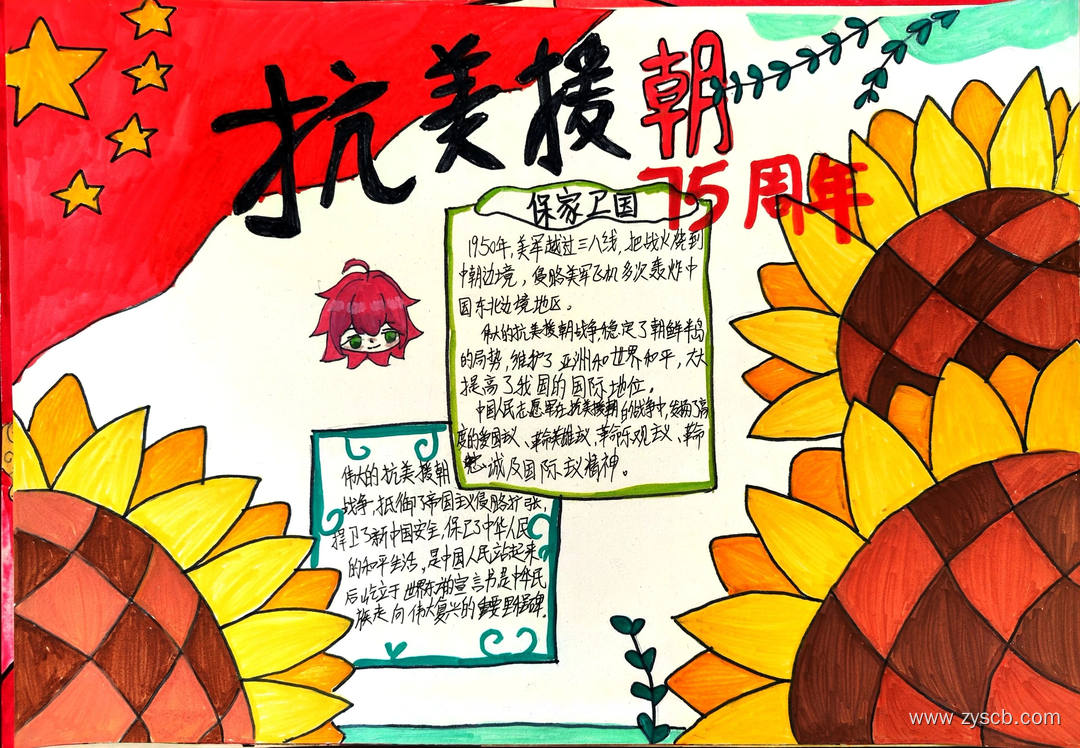 抗美援朝
75周年
保家卫国
1950年,美军越过三八线,把战火烧到
中朝边境,侵略美军飞机多次轰炸中
国东北边境地区。
伟大的抗美援朝战争,稳定了朝鲜半岛
的局势,维护了亚洲和世界和平,大大
提高了我国的国际地位。
中国人民志愿军在抗美援朝的战争中,发扬了高
度的爱国主义、革命英雄主义、革命乐观主义、革命
忠诚及国际主义精神。
伟大的抗美援朝
战争,抵御了帝国主义侵略扩张,
捍卫了新中国安全,保卫了中华人民
的和平生活,是中国人民站起来
后屹立于世界东方的宣言书是中华民
族走向伟大复兴的重要里程碑.
www.zyscb.com